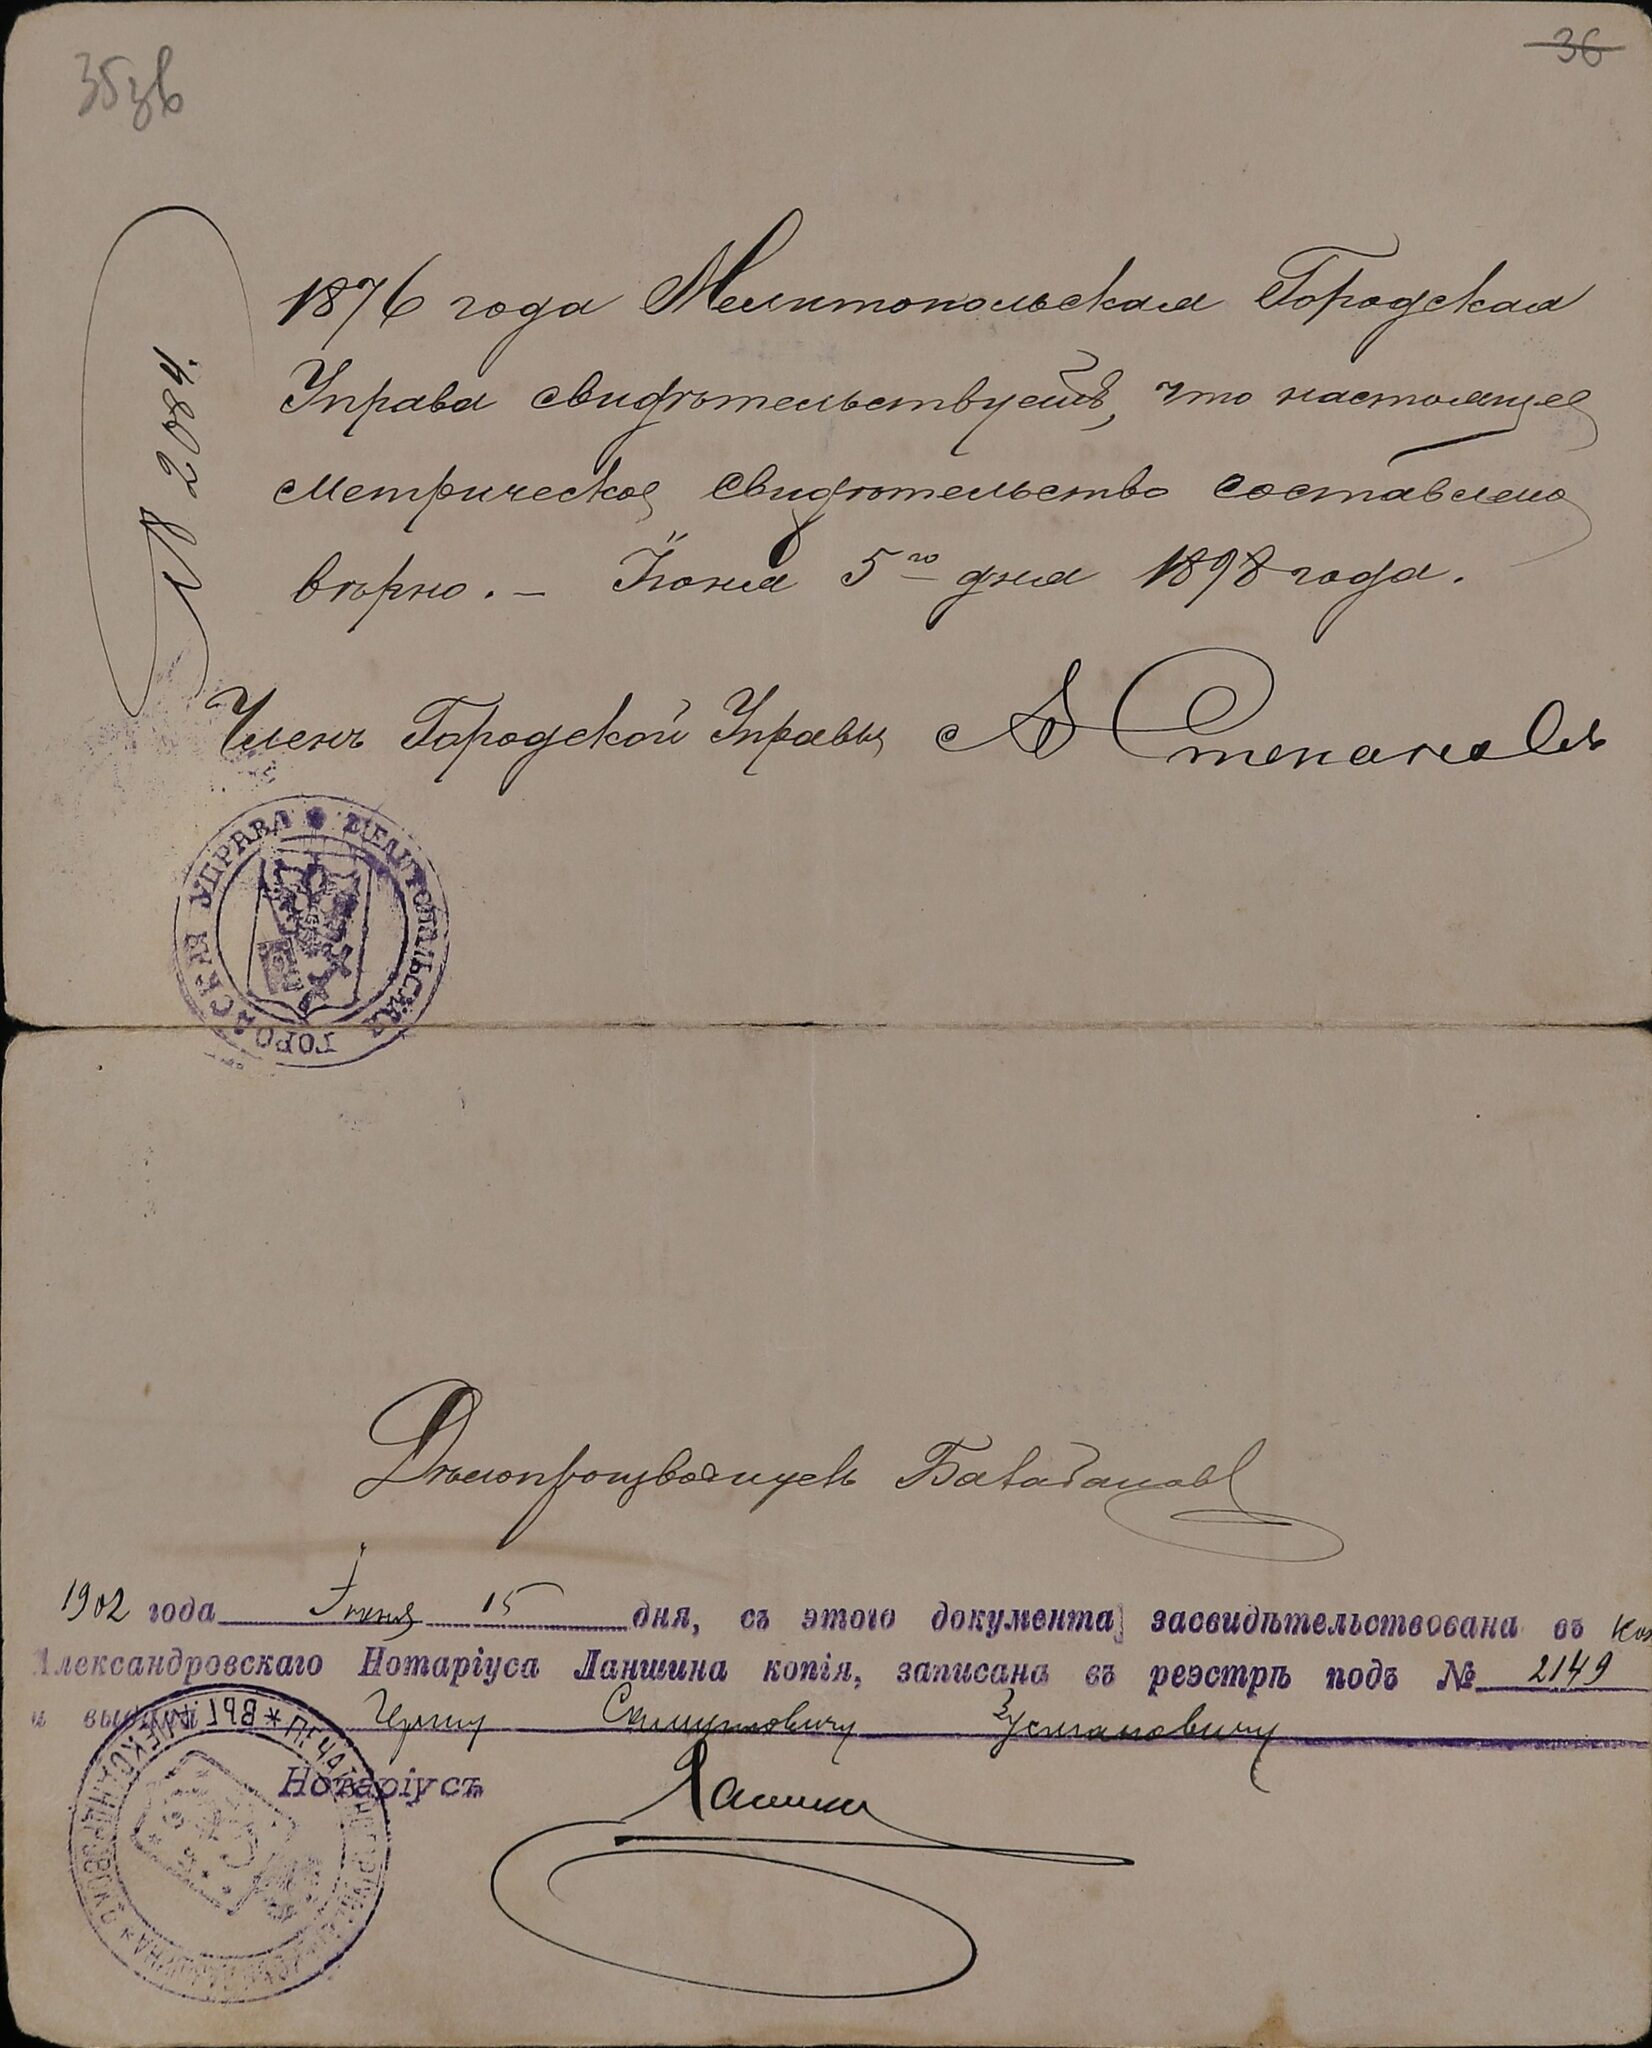 35зв
36
№ 2084.
1876 года Мелитопольская Городская
Управа свидѣтельствуетъ, что настоящее
метрическое свидѣтельство составлено
вѣрно. – Іюня 5го дня 1898 года.
Членъ Городской Управы А Степановъ
МЕЛИТОПОЛЬСКАЯ ГОРОДСКАЯ УПРАВА
Дѣлопроизводитель
1902 года Іюня 15 дня, съ этого документа засвидѣтельствована въ
Александровскаго Нотаріуса Ланшина копія, записана въ реэстрѣ подъ № 2149
и Зусмановичу
Нотаріусъ Ланшин